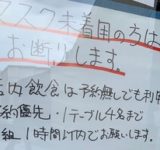 マスク未着用の方は
お断りします。
内飲食は予約無しでも利用
約優先・1テーブル4名まで
組1時間以内でお願いします。